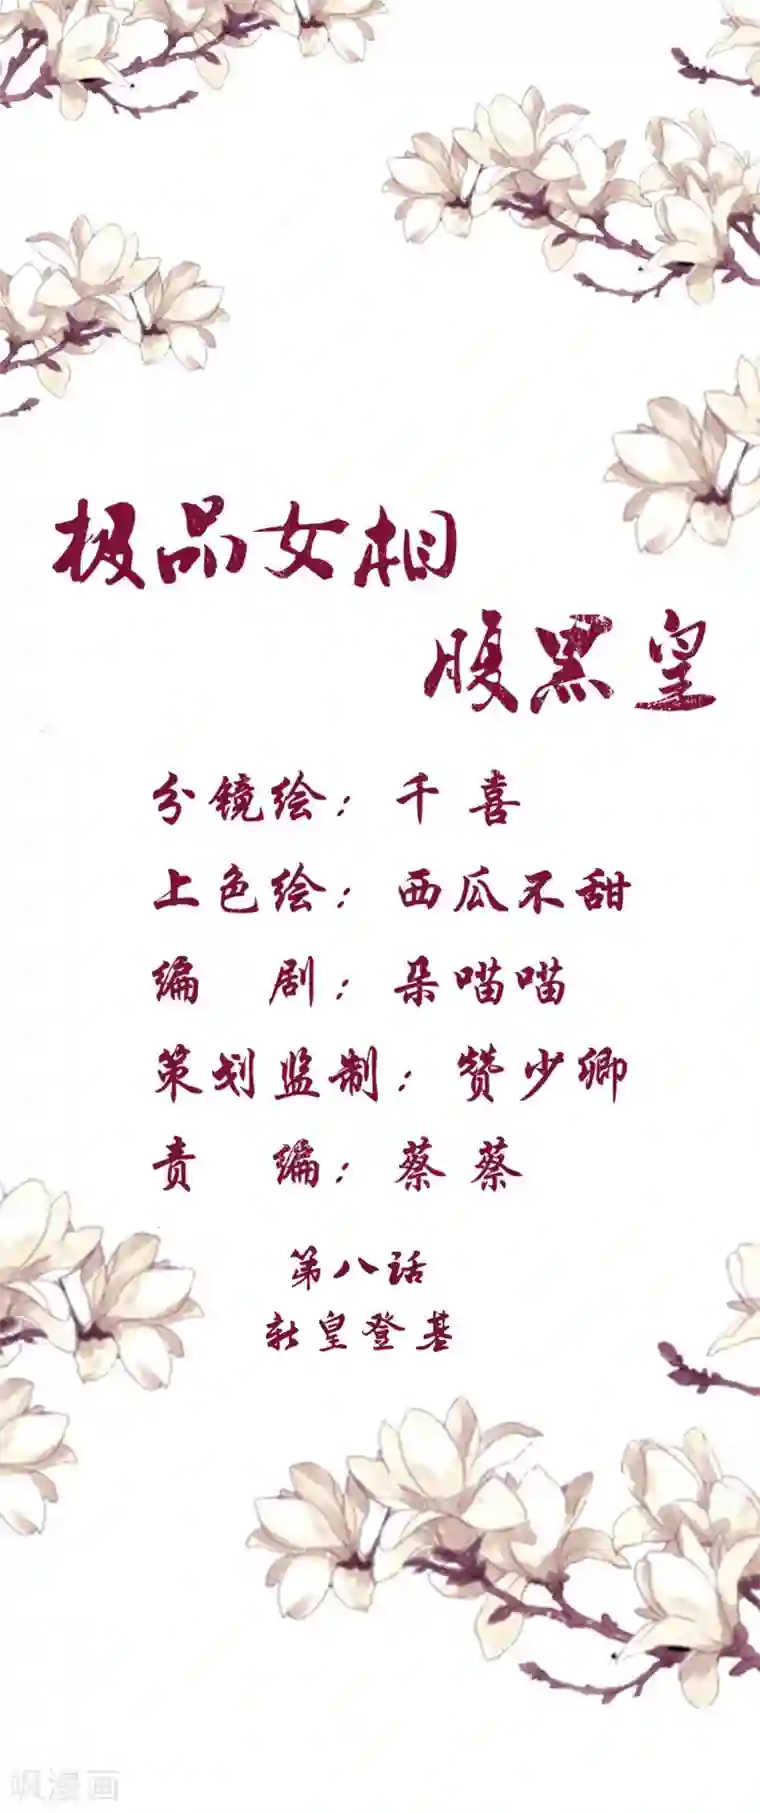 极品女相
腹黑皇
分镜绘：千喜
上色绘：西瓜不甜
编剧：朵喵喵
策划监制：赞少卿
责编：蔡蔡
第八话
新皇登基
飒漫画